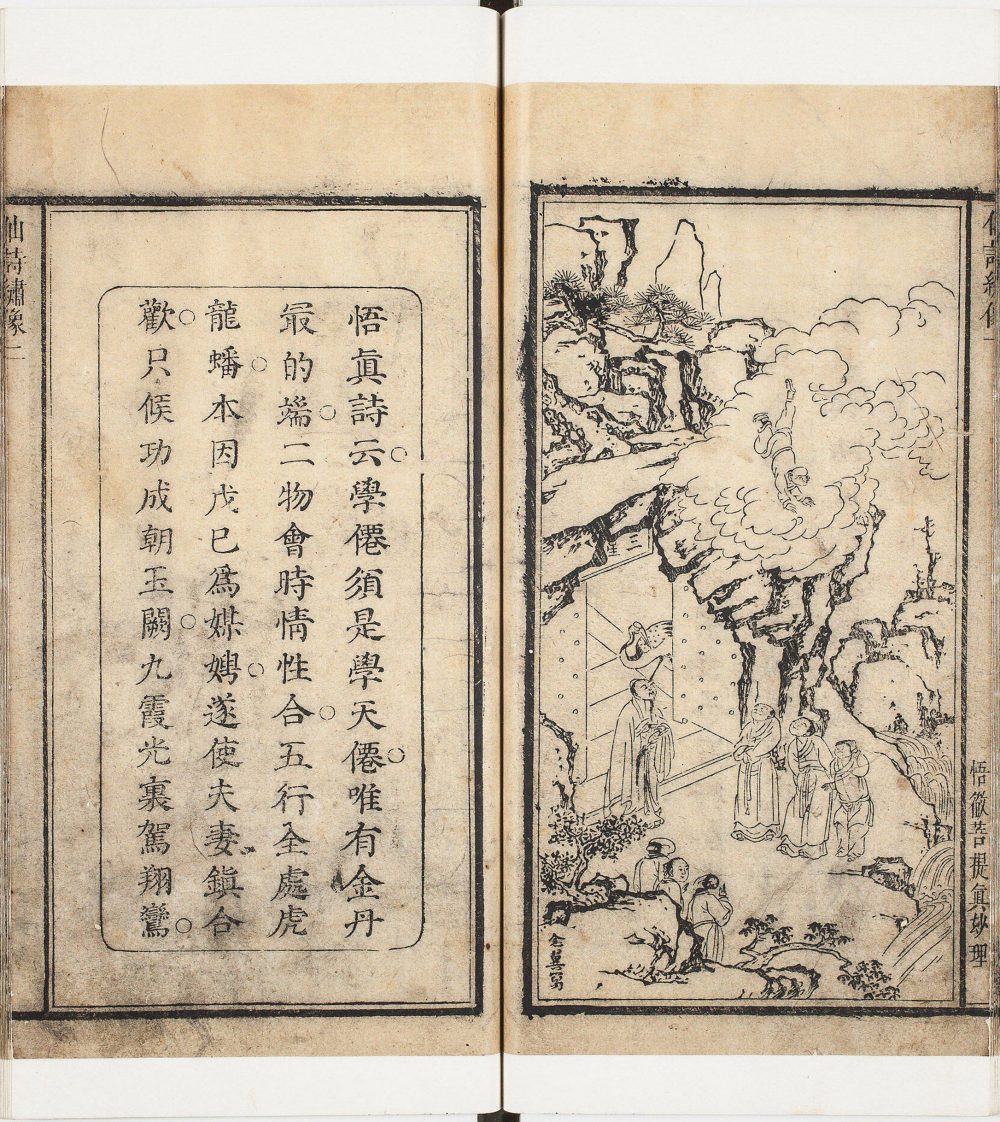 仙詩繡像一
悟徹菩提眞妙理
三
寫
悟眞詩云。學僊須是學天僊。唯有金丹
最的端。二物會時情性合。五行全處虎
龍蟠。本因戊巳爲媒娉。遂使夫妻鎭合
歡。只候功成朝玉闕。九霞光裏駕翔鸞。
仙詩繡像二